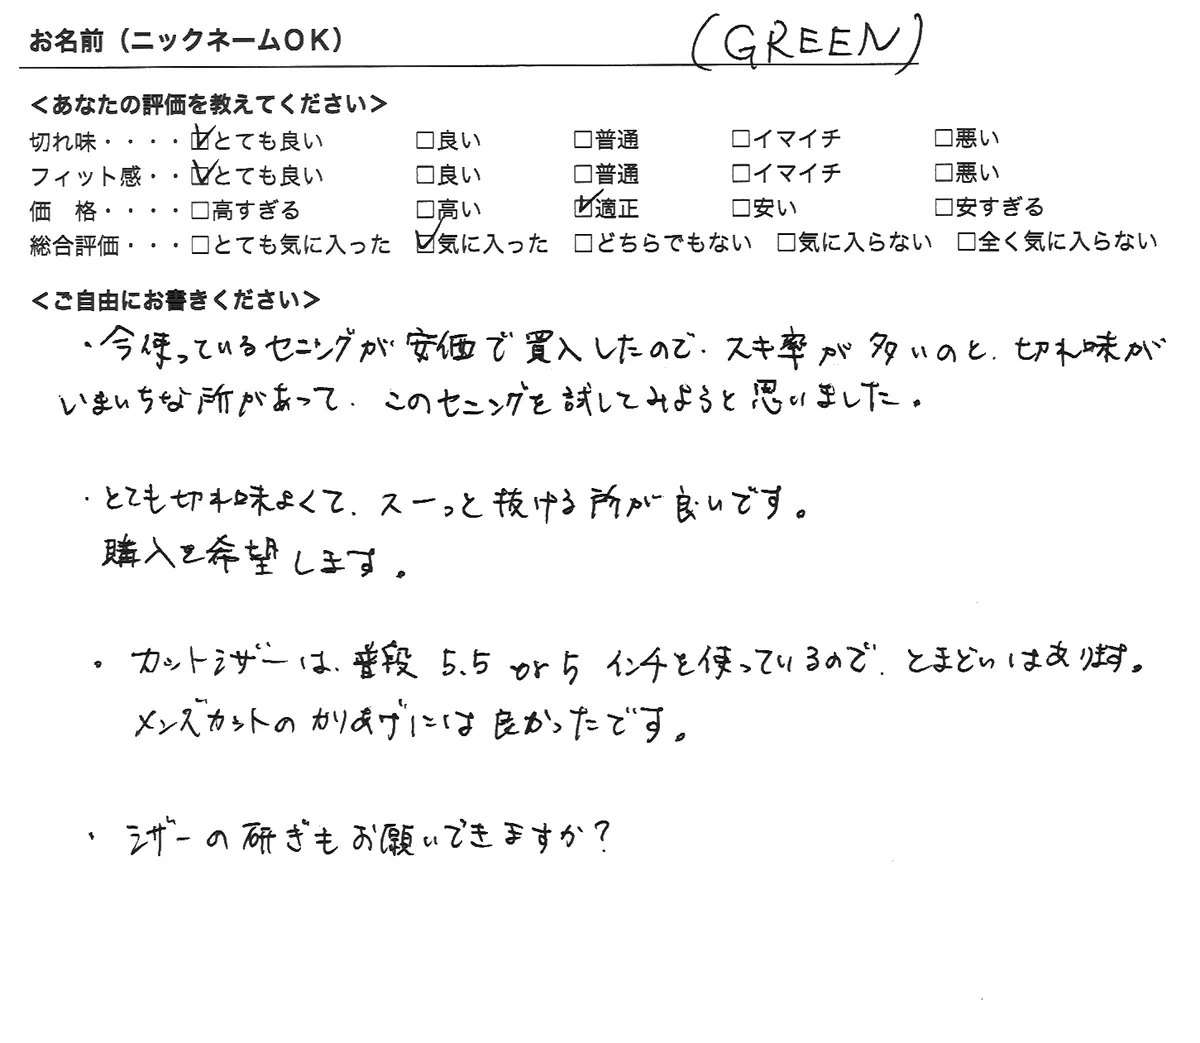 お名前（ニックネームOK） (GREEN)
＜あなたの評価を教えてください＞
切れ味・・・・☑とても良い □良い □普通 □イマイチ □悪い
フィット感・・☑とても良い □良い □普通 □イマイチ □悪い
価　格・・・・□高すぎる □高い ☑適正 □安い □安すぎる
総合評価・・・□とても気に入った ☑気に入った □どちらでもない □気に入らない □全く気に入らない
＜ご自由にお書きください＞
・今使っているセニングが安価で買入したので、スキ率が多いのと、切れ味が
いまいちな所があって、このセニングを試してみようと思いました。
・とても切れ味よくて、スーっと抜ける所が良いです。
購入を希望します。
・カットシザーは、普段 5.5 or 5 インチを使っているので、とまどいはあります。
メンズカットのかりあげには良かったです。
・シザーの研ぎもお願いできますか？